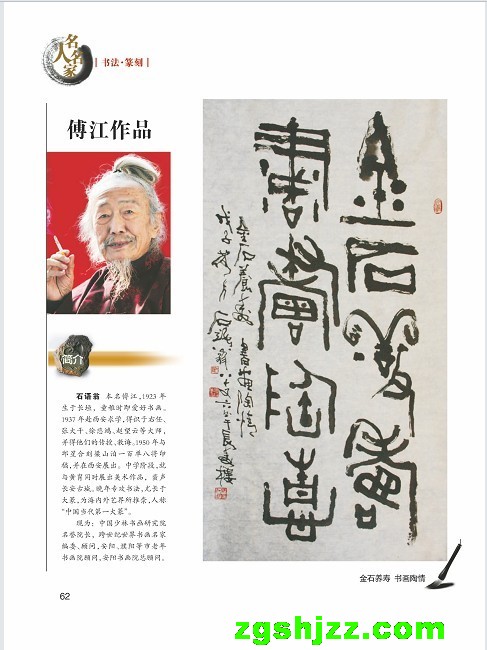 名人名家
|书法·篆刻|
傅江作品
简介
石语翁 本名傅江,1923年
生于长垣,童稚时即爱好书画。
1937年赴西安求学,得识于右任、
张大千、徐悲鸿、赵望云等大师,
并得他们的传授、教诲。1950年与
邵星合刻梁山泊一百单八将印
稿,并在西安展出。中学阶段,就
与黄胄同时展出美术作品,蜚声
长安古城。晚年专攻书法,尤长于
大篆,为海内外艺界所推崇,人称
“中国当代第一大篆”。
现为:中国少林书画研究院
名誉院长,跨世纪世界书画名家
编委、顾问,安阳、濮阳等市老年
书画院顾问,安阳书画院总顾问。
金石养寿
书画陶情
金石养寿 书画陶情
62
zgshjzz.com